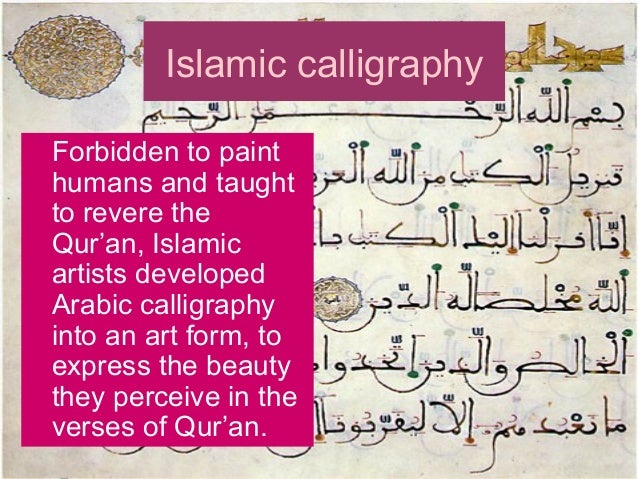 Islamic calligraphy
بسم الله الرحمن الرحيم
تنزيل الكتب من الله
انا انزلنا اليك الكتب
الله مخلصا له الدين
الخالص والذين اتخذوا
ما نعبدهم الا ليقربونا
Forbidden to paint
humans and taught
to revere the
Qur’an, Islamic
artists developed
Arabic calligraphy
into an art form, to
express the beauty
they perceive in the
verses of Qur’an.